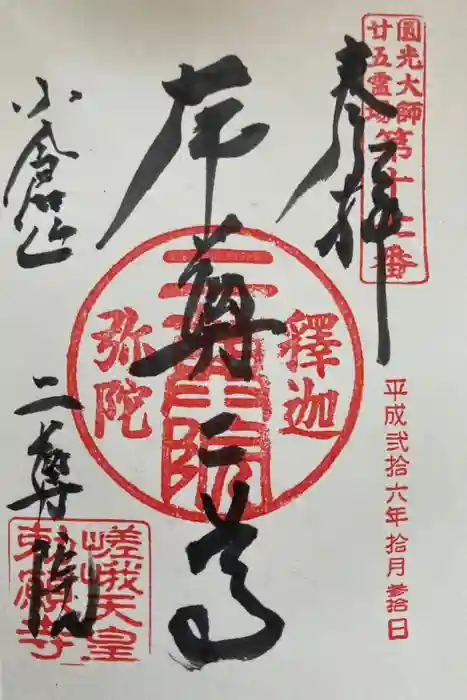 圓光大師
廿五霊場
第十七番
奉拝
平成弐拾六年拾月参拾日
本尊二尊
釋迦
二尊院
弥陀
小倉山
二尊院
嵯峨天皇
勅願寺